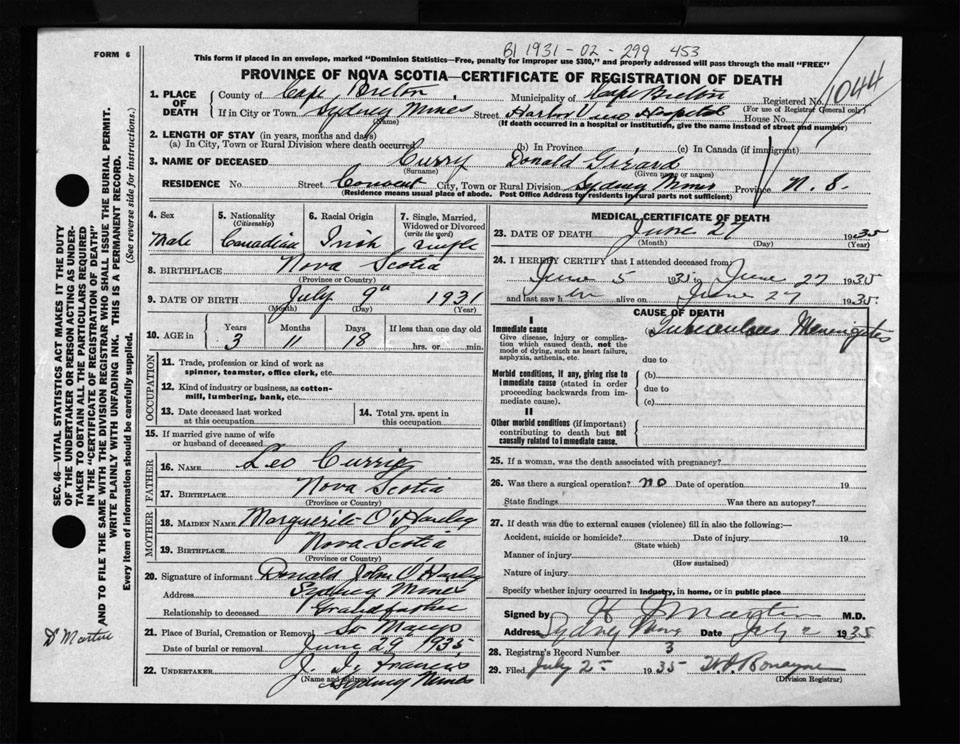 B1 1931-02-299 453
FORM 6
This form if placed in an envelope, marked "Dominion Statistics—Free, penalty for improper use $300," and properly addressed will pass through the mail "FREE"
PROVINCE OF NOVA SCOTIA—CERTIFICATE OF REGISTRATION OF DEATH
1044
1. PLACE OF DEATH
County of Cape Breton, Municipality of Cape Breton Registered No.
(For use of Registrar General only)
If in City or Town Sydney Mines Street Harbor View Hospital House No.
(Name) (If death occurred in a hospital or institution, give the name instead of street and number)
2. LENGTH OF STAY (in years, months and days)
(a) In City, Town or Rural Division where death occurred (b) In Province (c) In Canada (if immigrant)
3. NAME OF DECEASED Curry Donald Girard
(Surname) (Given name or names)
RESIDENCE No. Street Convent City, Town or Rural Division Sydney Mines Province N. S.
(Residence means usual place of abode. Post Office Address for residents in rural parts not sufficient)
4. Sex
Male
5. Nationality
(Citizenship)
Canadian
6. Racial Origin
Irish
7. Single, Married, Widowed or Divorced
(write the word)
single
8. BIRTHPLACE Nova Scotia
(Province or Country)
9. DATE OF BIRTH July 9th 1931
(Month) (Day) (Year)
10. AGE in
Years Months Days If less than one day old
3 11 18 hrs. or min.
OCCUPATION
11. Trade, profession or kind of work as
spinner, teamster, office clerk, etc.
12. Kind of industry or business, as cotton-
mill, lumbering, bank, etc.
13. Date deceased last worked
at this occupation
14. Total yrs. spent in
this occupation
15. If married give name of wife
or husband of deceased
FATHER
16. NAME Leo Currie
17. BIRTHPLACE Nova Scotia
(Province or Country)
MOTHER
18. MAIDEN NAME Marguerite O'Hanley
19. BIRTHPLACE Nova Scotia
(Province or Country)
20. Signature of informant Donald John O'Hanley
Address Sydney Mines
Relationship to deceased Grandfather
21. Place of Burial, Cremation or Removal
Date of burial or removal June 29 1935
22. UNDERTAKER J. Francis
(Name and Address) Sydney Mines
MEDICAL CERTIFICATE OF DEATH
23. DATE OF DEATH June 27 1935
(Month) (Day) (Year)
24. I HEREBY CERTIFY that I attended deceased from
June 5 1935 to June 27 1935
and last saw him alive on June 27 1935.
CAUSE OF DEATH
I
Immediate cause
Give disease, injury or complica-
tion which caused death, not the
mode of dying, such as heart failure,
asphyxia, asthenia, etc.
(a) Tuberculous Meningites
due to
Morbid conditions, if any, giving rise to
immediate cause (stated in order
proceeding backwards from im-
mediate cause).
(b)
due to
(c)
II
Other morbid conditions (if important)
contributing to death but not
causally related to immediate cause.
25. If a woman, was the death associated with pregnancy?
26. Was there a surgical operation? no Date of operation 19
State findings Was there an autopsy?
27. If death was due to external causes (violence) fill in also the following:—
Accident, suicide or homicide? Date of injury 19
(State which)
Manner of injury
(How sustained)
Nature of injury
Specify whether injury occurred in industry, in home, or in public place
Signed by Martin M.D.
Address Sydney Mines Date July 2 1935
28. Registrar's Record Number 3
29. Filed July 2 1935
(Division Registrar)
SEC. 46—VITAL STATISTICS ACT MAKES IT THE DUTY
OF THE UNDERTAKER OR PERSON ACTING AS UNDER-
TAKER TO OBTAIN ALL THE PARTICULARS REQUIRED
IN THE "CERTIFICATE OF REGISTRATION OF DEATH"
AND TO FILE THE SAME WITH THE DIVISION REGISTRAR WHO SHALL ISSUE THE BURIAL PERMIT.
WRITE PLAINLY WITH UNFADING INK. THIS IS A PERMANENT RECORD.
Every item of information should be carefully supplied. (See reverse side for instructions.)
Dr Martin